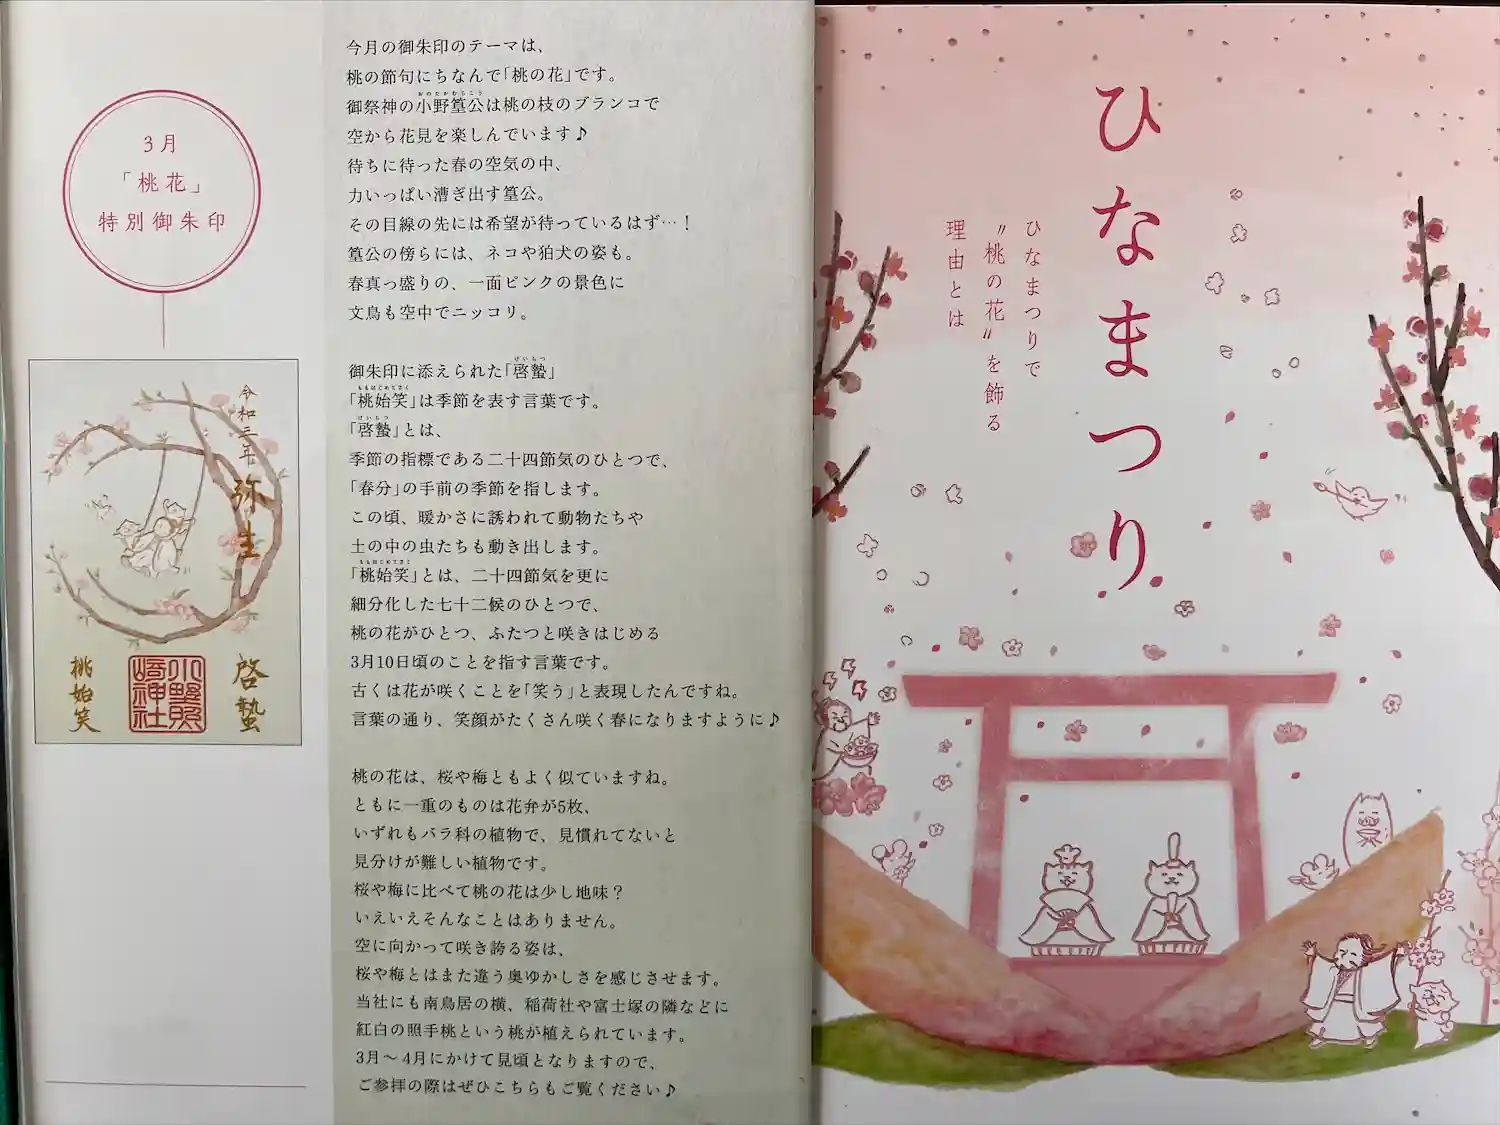 3月
「桃花」
特別御朱印
令和三年
弥生
啓蟄
小野照
崎神社
桃始笑
今月の御朱印のテーマは、
桃の節句にちなんで「桃の花」です。
おのたかむらこう
御祭神の小野篁公は桃の枝のブランコで
空から花見を楽しんでいます♪
待ちに待った春の空気の中、
力いっぱい漕ぎ出す篁公。
その目線の先には希望が待っているはず…!
篁公の傍らには、ネコや狛犬の姿も。
春真っ盛りの、一面ピンクの景色に
文鳥も空中でニッコリ。
けいちつ
御朱印に添えられた「啓蟄」
ももはじめてさく
「桃始笑」は季節を表す言葉です。
けいちつ
「啓蟄」とは、
季節の指標である二十四節気のひとつで、
「春分」の手前の季節を指します。
この頃、暖かさに誘われて動物たちや
土の中の虫たちも動き出します。
ももはじめてさく
「桃始笑」とは、二十四節気を更に
細分化した七十二候のひとつで、
桃の花がひとつ、ふたつと咲きはじめる
3月10日頃のことを指す言葉です。
古くは花が咲くことを「笑う」と表現したんですね。
言葉の通り、笑顔がたくさん咲く春になりますように♪
桃の花は、桜や梅ともよく似ていますね。
ともに一重のものは花弁が5枚、
いずれもバラ科の植物で、見慣れてないと
見分けが難しい植物です。
桜や梅に比べて桃の花は少し地味?
いえいえそんなことはありません。
空に向かって咲き誇る姿は、
桜や梅とはまた違う奥ゆかしさを感じさせます。
当社にも南鳥居の横、稲荷社や富士塚の隣などに
紅白の照手桃という桃が植えられています。
3月〜4月にかけて見頃となりますので、
ご参拝の際はぜひこちらもご覧ください♪
ひなまつり
ひなまつりで
〝桃の花〟を飾る
理由とは